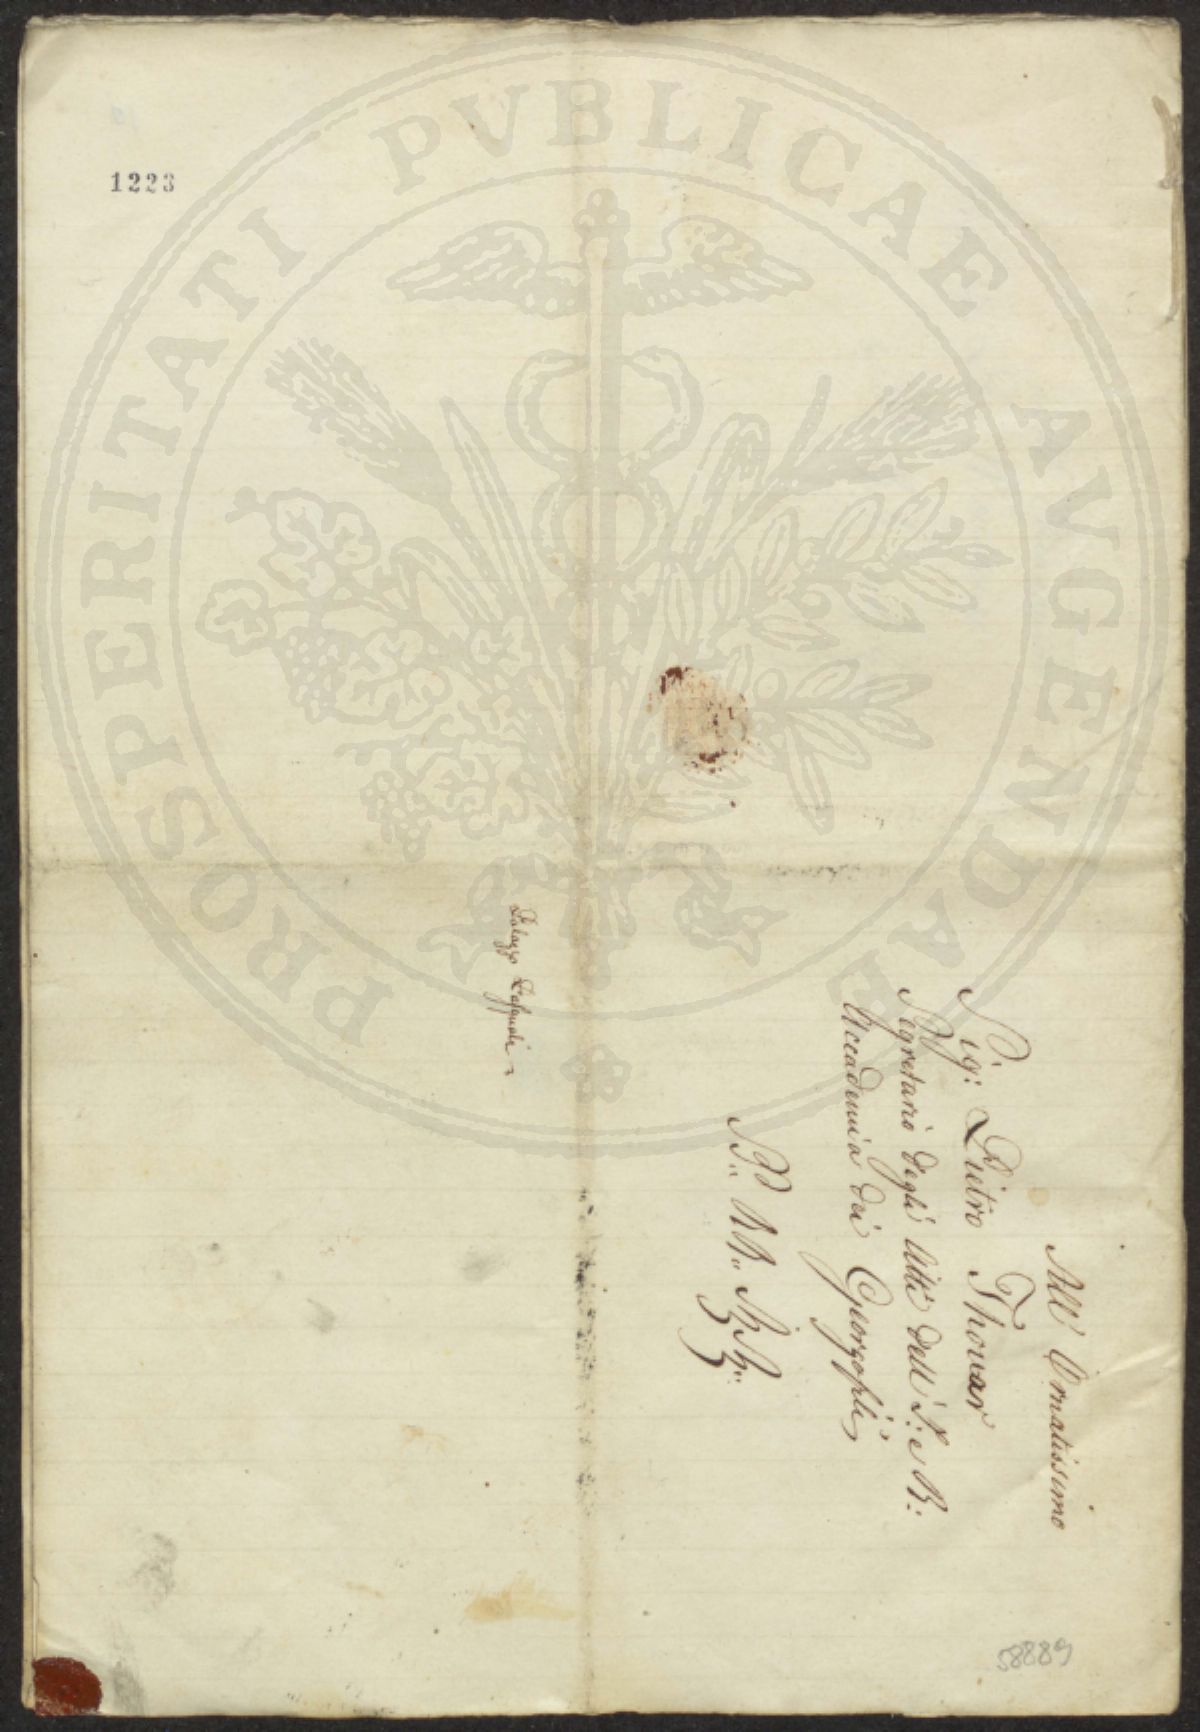 1223
PROSPERITATI PVBLICAE AVGENDAE
All' Ornatissimo
Sig: Pietro Thouar
Segretario degli Atti dell' I: e R:
Accademia dei Georgofili
S. P. M.
Palazzo
58889